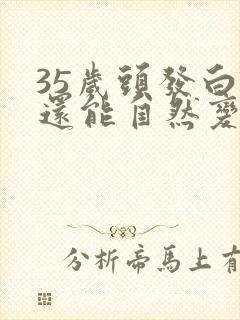 35歲頭發白
還能自然變
分析帝馬上有